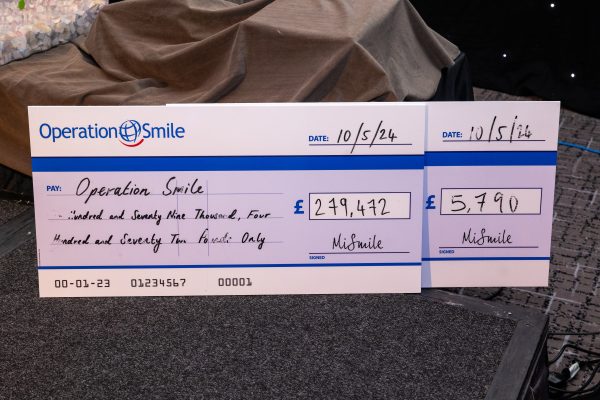 Operation Smile
DATE: 10/5/24
PAY: Operation Smile
Hundred and Seventy Nine Thousand, Four
Hundred and Seventy Two Only
£ 279,472
MiSmile
SIGNED
00-01-23 01234567 00001
DATE: 10/5/24
£ 5,790
MiSmile
SIGNED